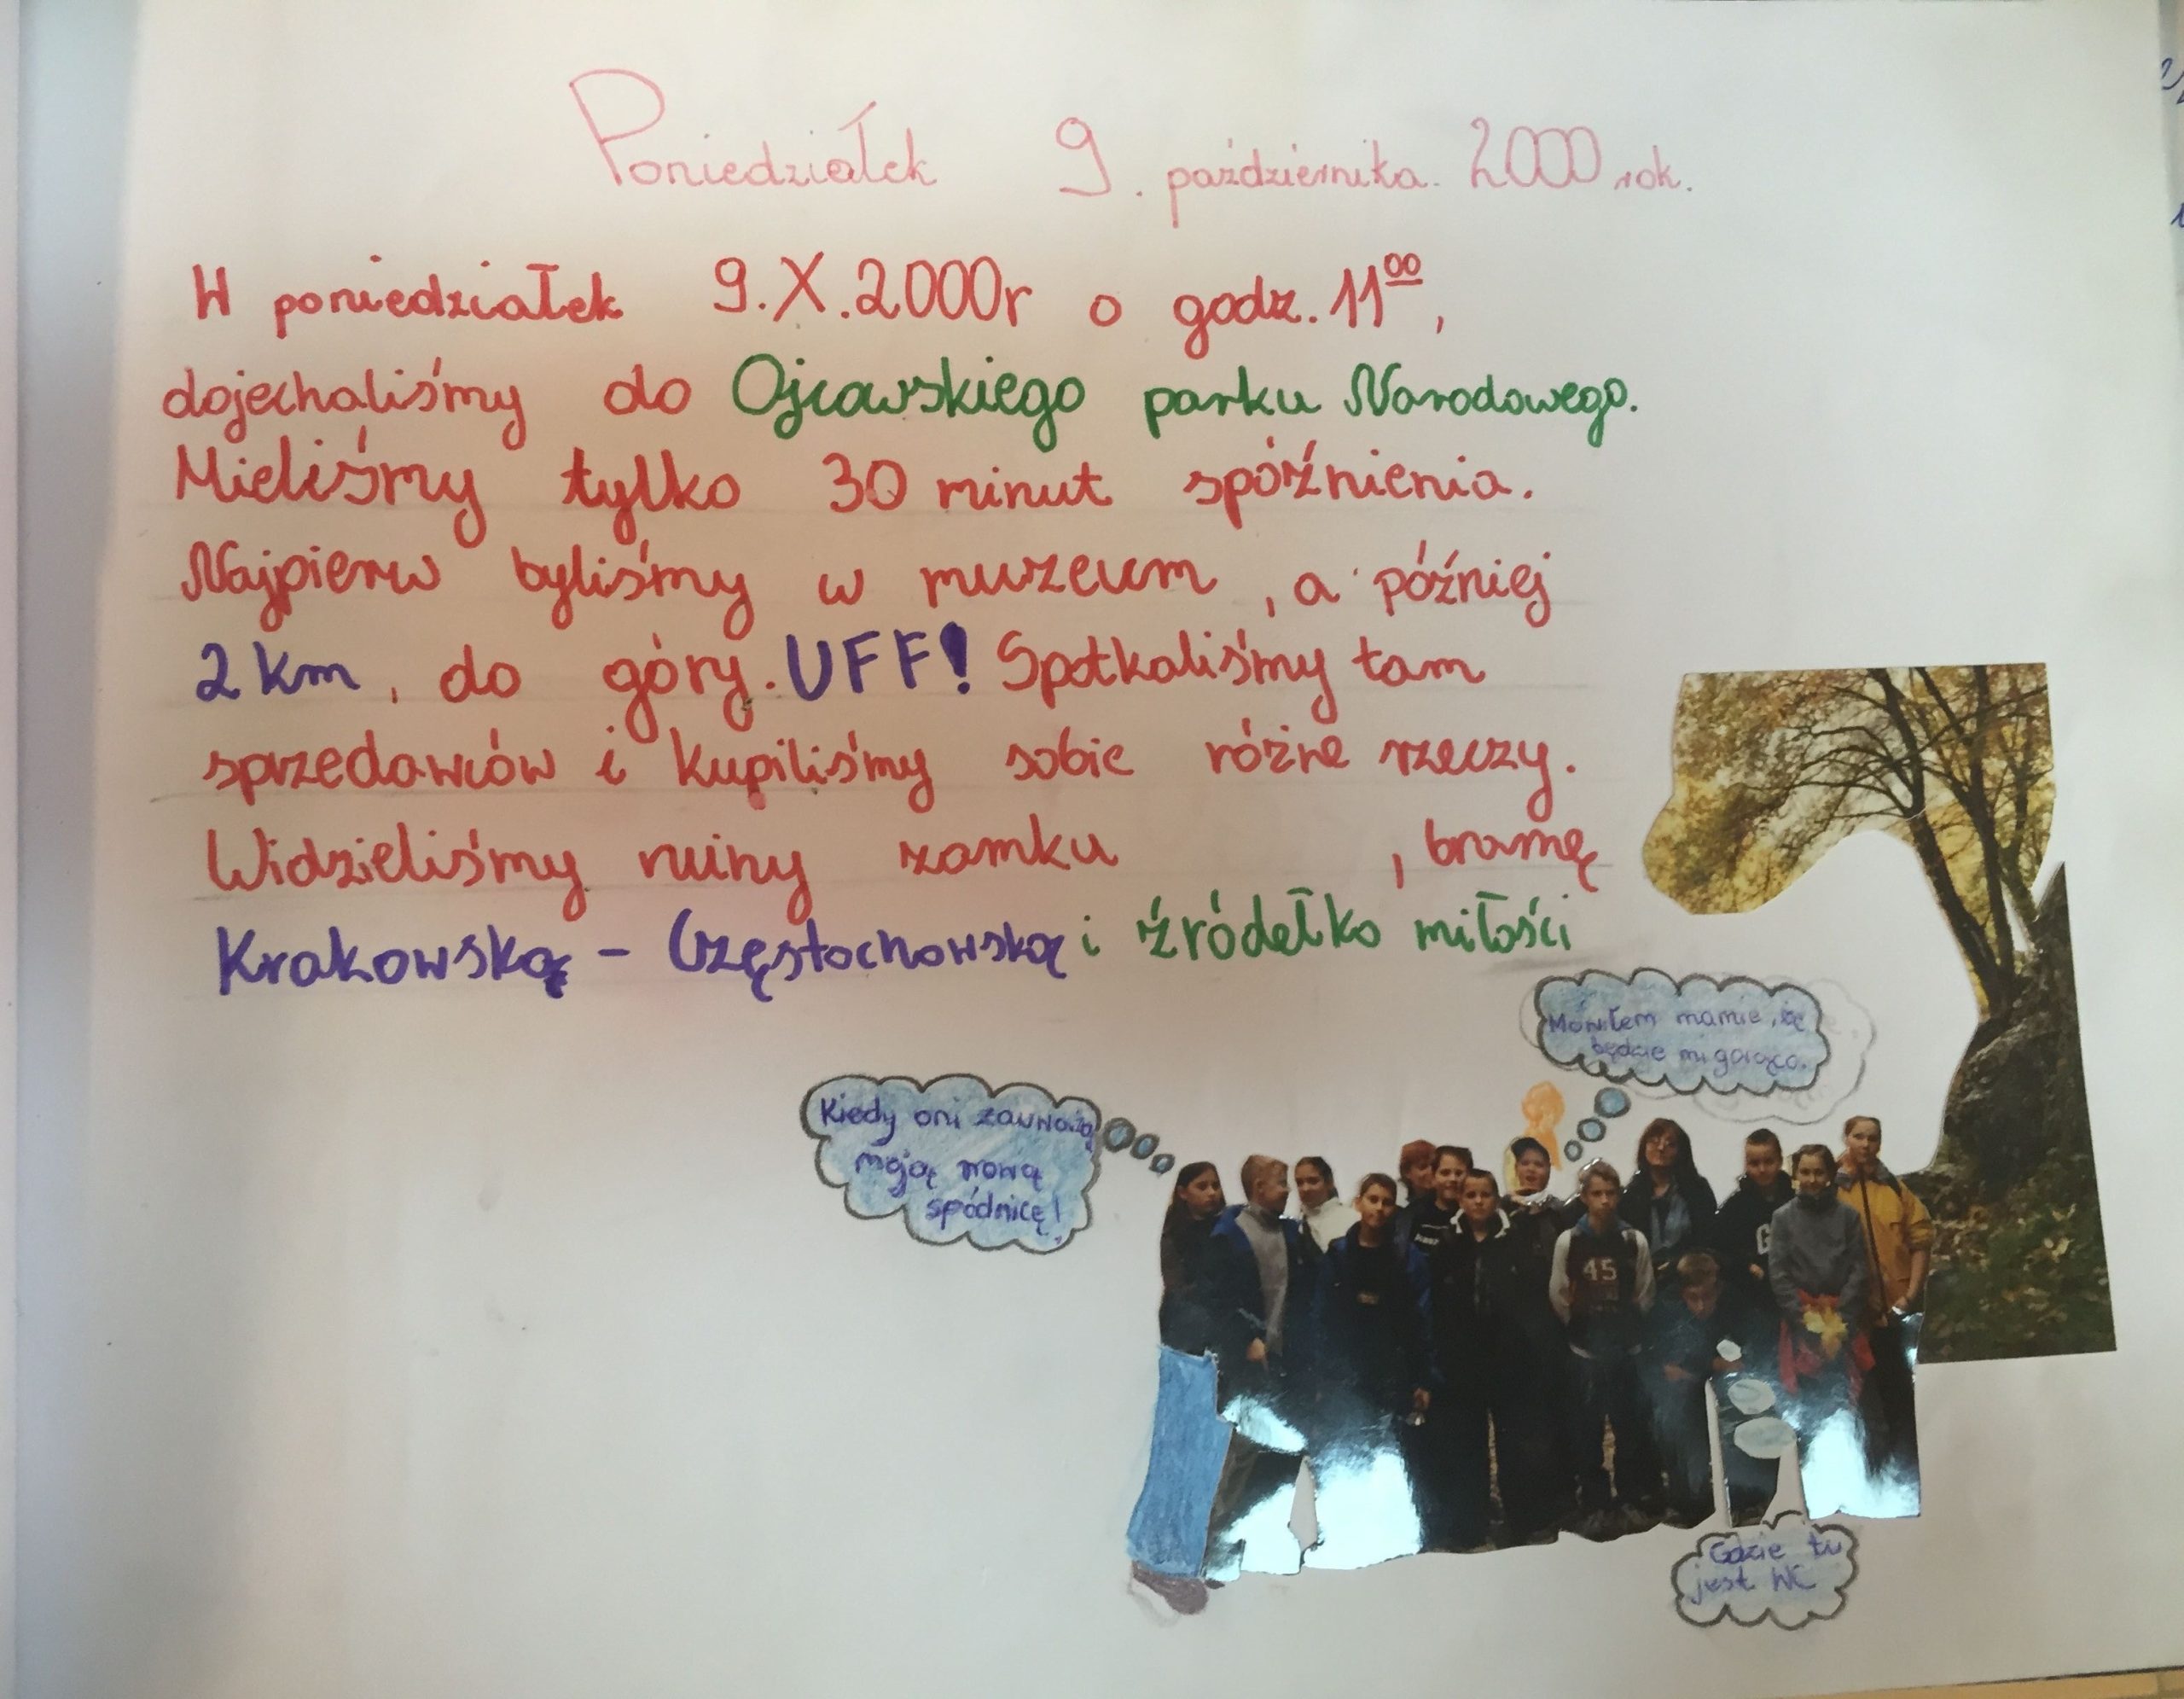 Poniedziałek 9. października. 2000 rok.
W poniedziałek 9.X.2000r o godz. 11⁰⁰,
dojechaliśmy do Ojcowskiego parku Narodowego.
Mieliśmy tylko 30 minut spóźnienia.
Najpierw byliśmy w muzeum, a później
2 km, do góry. UFF! Spotkaliśmy tam
sprzedawców i kupiliśmy sobie różne rzeczy.
Widzieliśmy ruiny zamku , bramę
Krakowską - Częstochowską i źródełko miłości
Mówiłem mamie, że
będzie mi gorąco.
Kiedy oni zauważą
moją nową
spódnicę!
45
Gdzie tu
jest WC